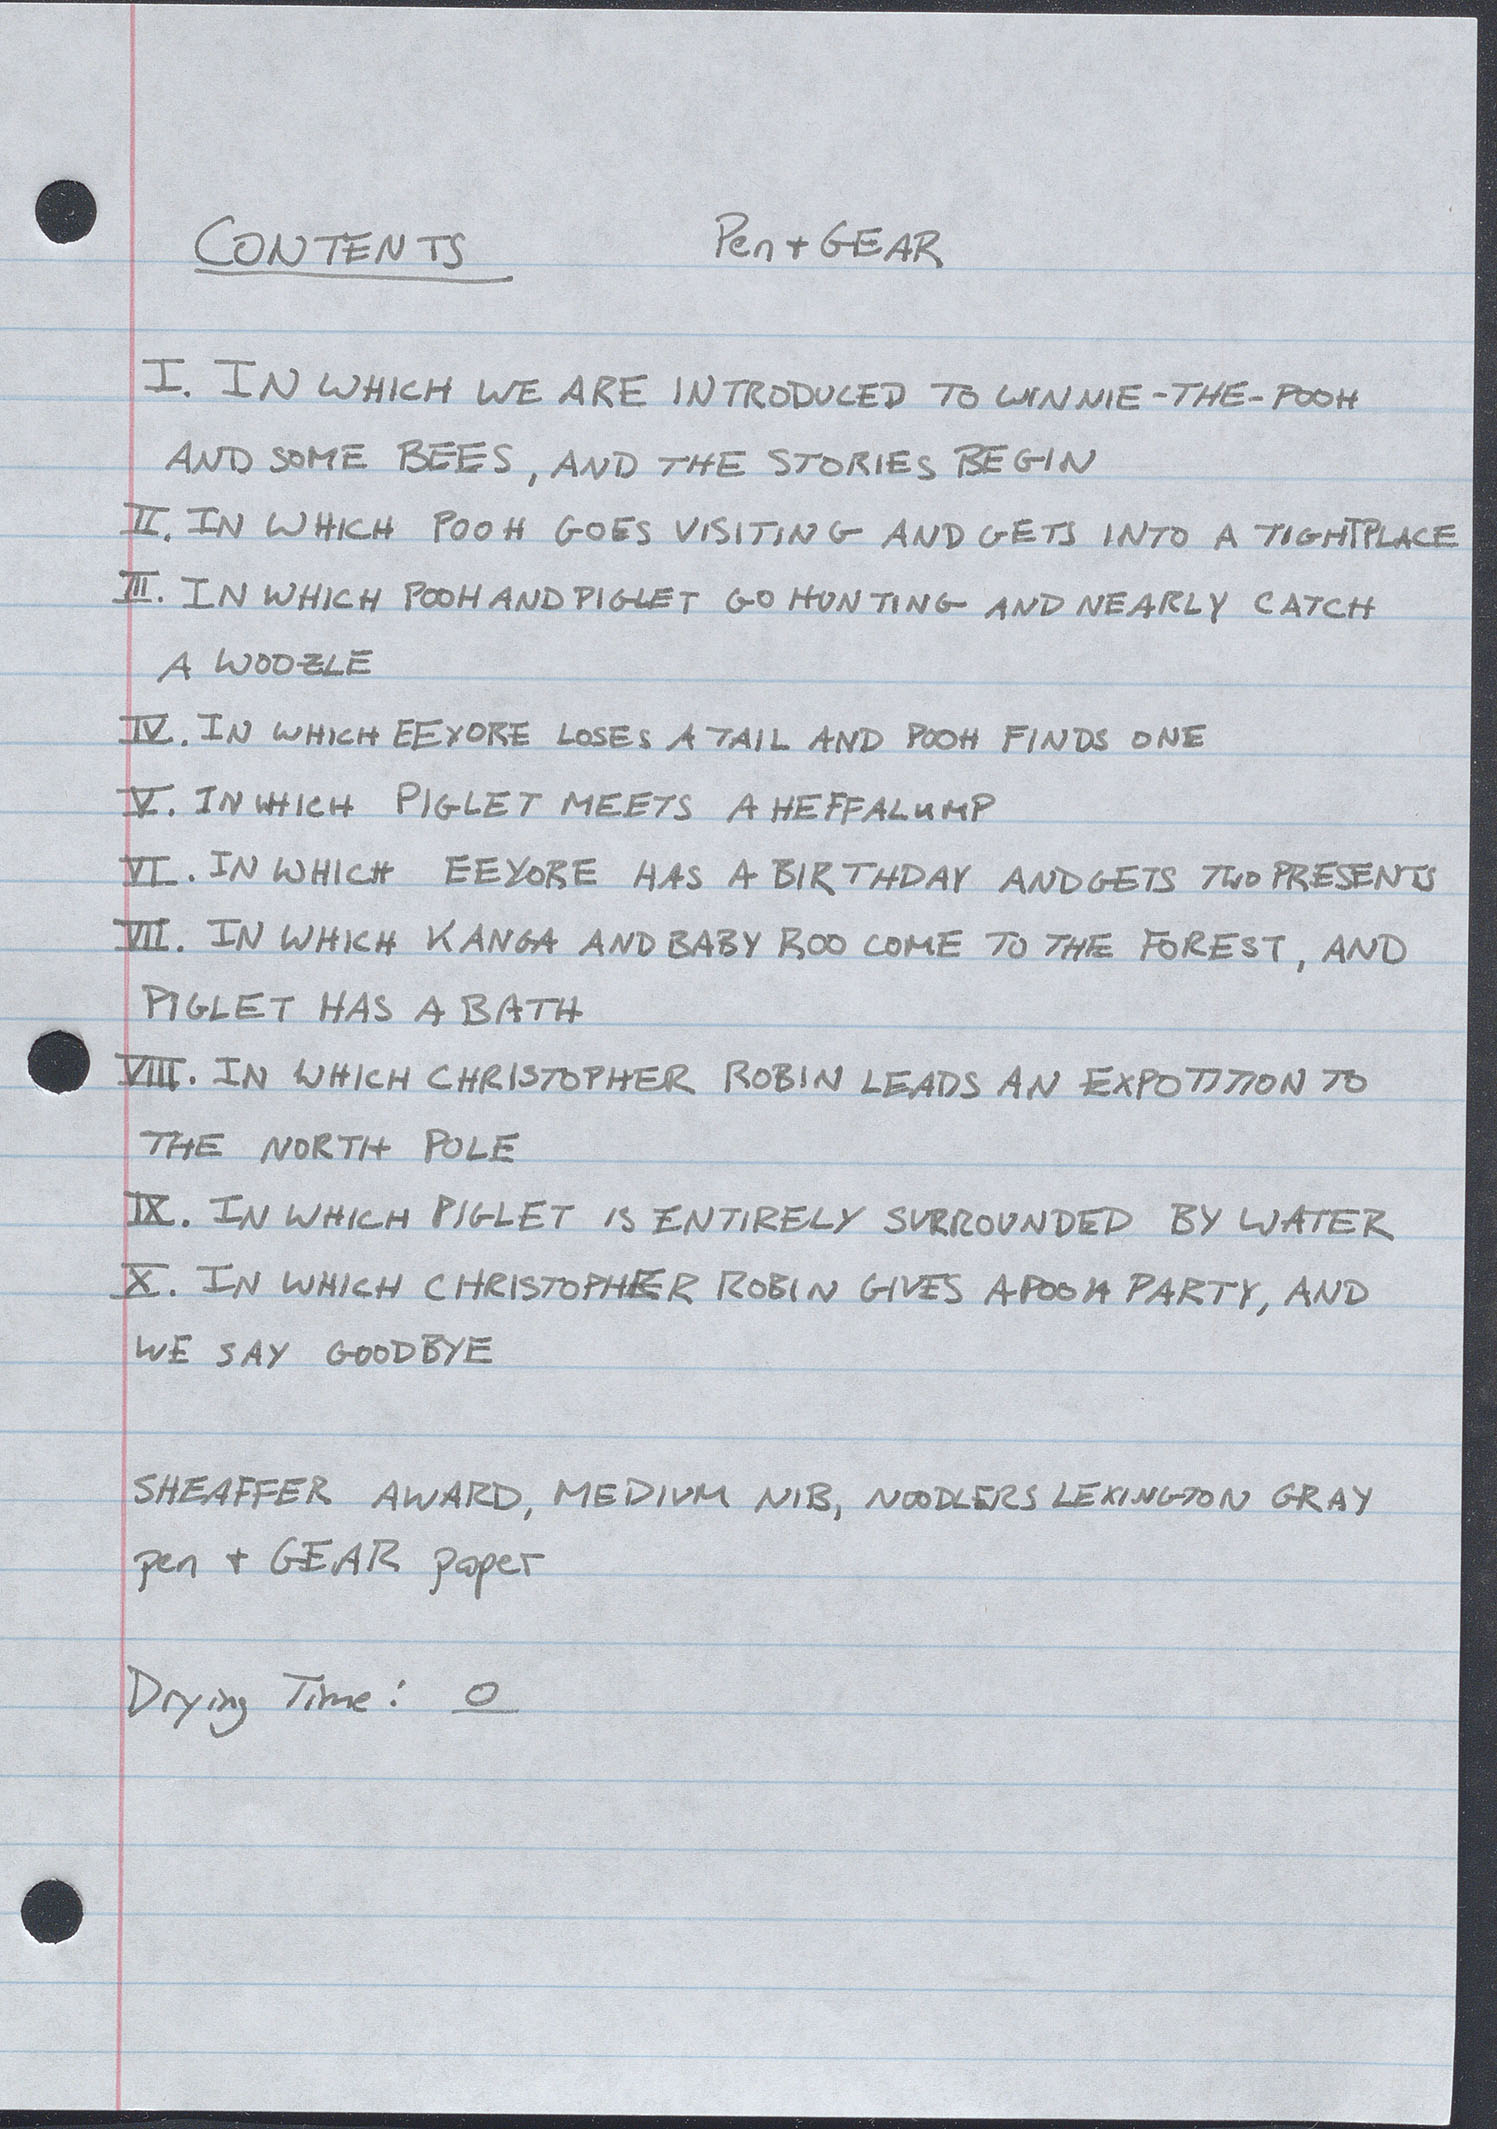 CONTENTS Pen + GEAR
I. IN WHICH WE ARE INTRODUCED TO WINNIE-THE-POOH
AND SOME BEES, AND THE STORIES BEGIN
II. IN WHICH POOH GOES VISITING AND GETS INTO A TIGHT PLACE
III. IN WHICH POOH AND PIGLET GO HUNTING AND NEARLY CATCH
A WOOZLE
IV. IN WHICH EEYORE LOSES A TAIL AND POOH FINDS ONE
V. IN WHICH PIGLET MEETS A HEFFALUMP
VI. IN WHICH EEYORE HAS A BIRTHDAY AND GETS TWO PRESENTS
VII. IN WHICH KANGA AND BABY ROO COME TO THE FOREST, AND
PIGLET HAS A BATH
VIII. IN WHICH CHRISTOPHER ROBIN LEADS AN EXPOTITION TO
THE NORTH POLE
IX. IN WHICH PIGLET IS ENTIRELY SURROUNDED BY WATER
X. IN WHICH CHRISTOPHER ROBIN GIVES A POOH PARTY, AND
WE SAY GOODBYE
SHEAFFER AWARD, MEDIUM NIB, NOODLERS LEXINGTON GRAY
pen + GEAR paper
Drying Time: 0